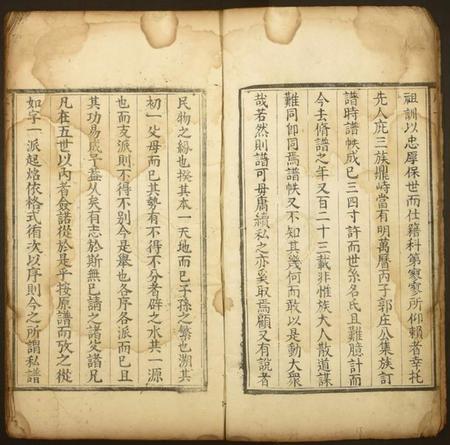 祖訓以忠厚保世而仕籍科第寥寥所仰賴者幸托
先人庇三族鼎峙當有明萬曆丙子郭庄公集族訂
譜時譜帙成已三四寸許而世系名氏且難臆計而
今去脩譜之年又百二十三載非惟族大人散道謀
難同即同焉譜帙又不知其幾何而敢以是動大衆
哉若然則譜可毋庸續私之亦奚取焉顧又有說者
民物之紛也揆其本一天地而已子孫之繁也溯其
初一父母而已其勢有不得不分者辟之水其一源
也而支派則不得不别今是舉也各序各派而已且
其功易成乎葢从矣有志於斯無已請之諸父諸兄
凡在五世以內者僉諾從於是乎按原譜而攷之從
如字一派起焰依格式術次以序則今之所謂私譜